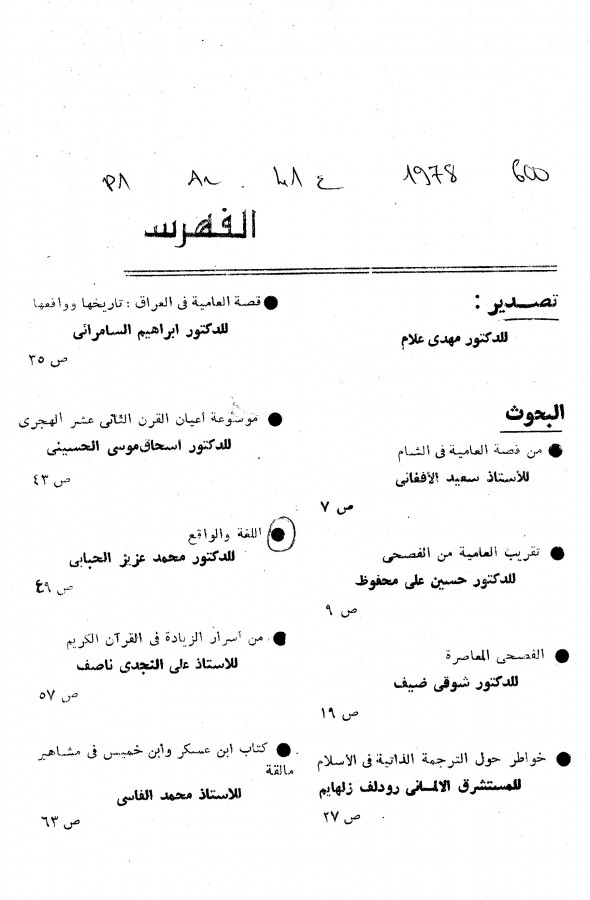 1978 600
الفهرس
تصدير :
للدكتور مهدى علام
البحوث
من قصة العامية فى الشام
للأستاذ سعيد الأفغانى
ص ٧
تقريب العامية من الفصحى
للدكتور حسين على محفوظ
ص ٩
الفصحى المعاصرة
للدكتور شوقى ضيف
ص ١٩
خواطر حول الترجمة الذاتية فى الاسلام
للمستشرق الالمانى رودلف زلهايم
ص ٢٧
قصة العامية فى العراق : تاريخها وواقعها
للدكتور ابراهيم السامرائى
ص ٣٥
موسوعة أعيان القرن الثانى عشر الهجرى
للدكتور اسحاق موسى الحسينى
ص ٤٣
اللغة والواقع
للدكتور محمد عزيز الحبابى
ص ٤٩
من أسرار الزيادة فى القرآن الكريم
للاستاذ على النجدى ناصف
ص ٥٧
كتاب ابن عسكر وأبن خميس فى مشاهير
مالقة
للاستاذ محمد الفاسى
ص ٦٣